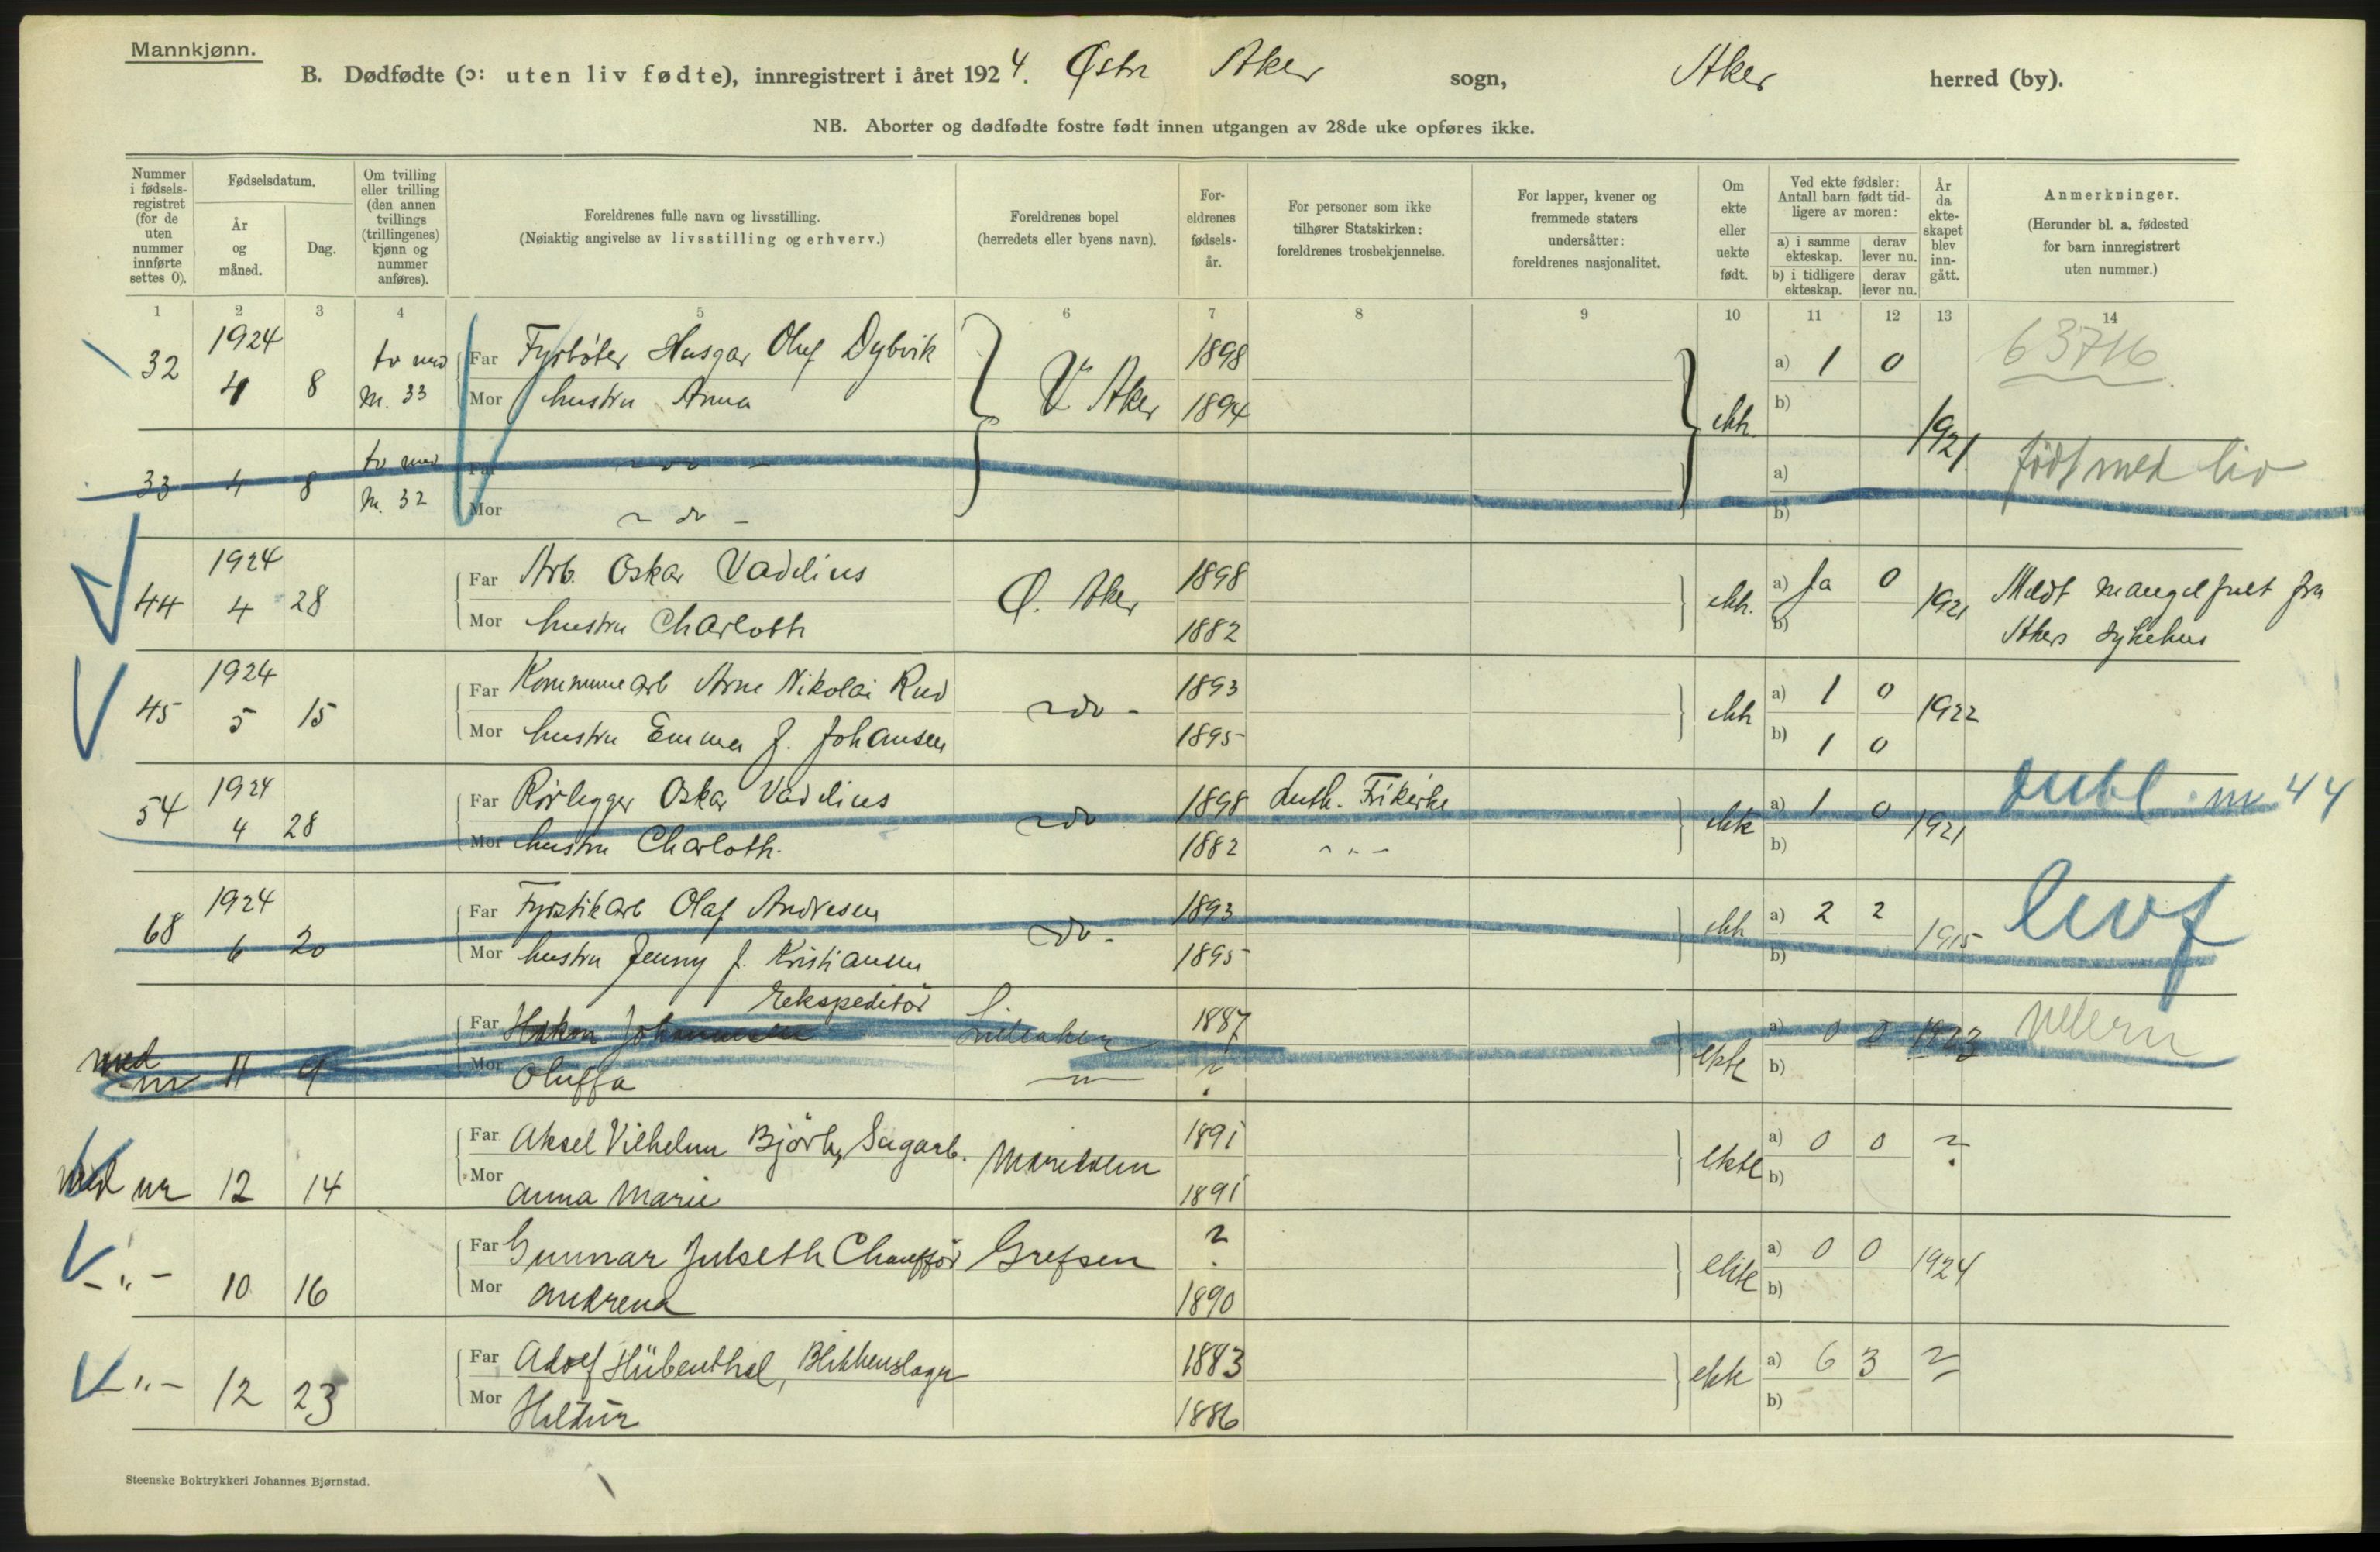 Mannkjønn.
B. Dødfødte (ɔ: uten liv fødte), innregistrert i året 1924. Østre Aker sogn, Aker herred (by).
NB. Aborter og dødfødte fostre født innen utgangen av 28de uke opføres ikke.
Nummer i fødsels-registret (for de uten nummer innførte settes 0).
Fødselsdatum.
År og måned.
Dag.
Om tvilling eller trilling (den annen tvillings (trillingenes) kjønn og nummer anføres).
Foreldrenes fulle navn og livsstilling.
(Nøiaktig angivelse av livsstilling og erhverv.)
Foreldrenes bopel
(herredets eller byens navn).
For-eldrenes fødsels-år.
For personer som ikke tilhører Statskirken: foreldrenes trosbekjennelse.
For lapper, kvener og fremmede staters undersåtter: foreldrenes nasjonalitet.
Om ekte eller uekte født.
Ved ekte fødsler: Antall barn født tid-ligere av moren:
a) i samme ekteskap.
derav lever nu.
b) i tidligere ekteskap.
derav lever nu.
År da ekte-skapet blev inn-gått.
Anmerkninger.
(Herunder bl. a. fødested for barn innregistrert uten nummer.)
1 2 3 4 5 6 7 8 9 10 11 12 13 14
32 1924 4 8 tv med M. 33
Far Fyrbøter Husgar Oluf Dybvik V. Aker 1898 ekte a) 1 0 1921 63716
Mor hustru Anna 1894 b)
33 4 8 tv med M. 32
Far - do - a) født med liv
Mor - do - b)
44 1924 4 28
Far Arb. Oskar Vadelius Ø. Aker 1898 ekte. a) ja 0 1921 Meldt mangelfult fra
Mor hustru Charloth 1882 b) Akers sykehus
45 1924 5 15
Far Kommunearb Arne Nikolai Rud - do - 1893 ekte a) 1 0 1922
Mor hustru Emma f. Johansen 1895 b) 1 0
54 1924 4 28
Far Rørlegger Oskar Vadelius - do 1898 Luth. Frikirke ekte a) 1 0 1921 dubl. nr 44
Mor hustru Charloth. 1882 - " - b)
68 1924 6 20
Far Fyrstikarb Olaf Andresen - do - 1893 ekte a) 2 2 1915 levf
Mor hustru Jenny f. Kristiansen 1895 b)
Ekspeditør
med nr 11 9
Far Håkon Johannesen Lilleaker 1887 ekte a) 0 0 1923
Mor Oluffa - " - ? b)
med nr 12 14
Far Aksel Vilhelm Björk, Sagarb. Maridalen 1891 ekte a) 0 0 ?
Mor Anna Marie 1891 b)
- " - 10 16
Far Gunnar Julseth Chauffør Grefsen ? ekte a) 0 0 1924
Mor Andrena 1890 b)
- " - 12 23
Far Adolf Hübenthal, Blikkenslager 1883 ekte a) 6 3 ?
Mor 1886 b)
Steenske Boktrykkeri Johannes Bjørnstad.